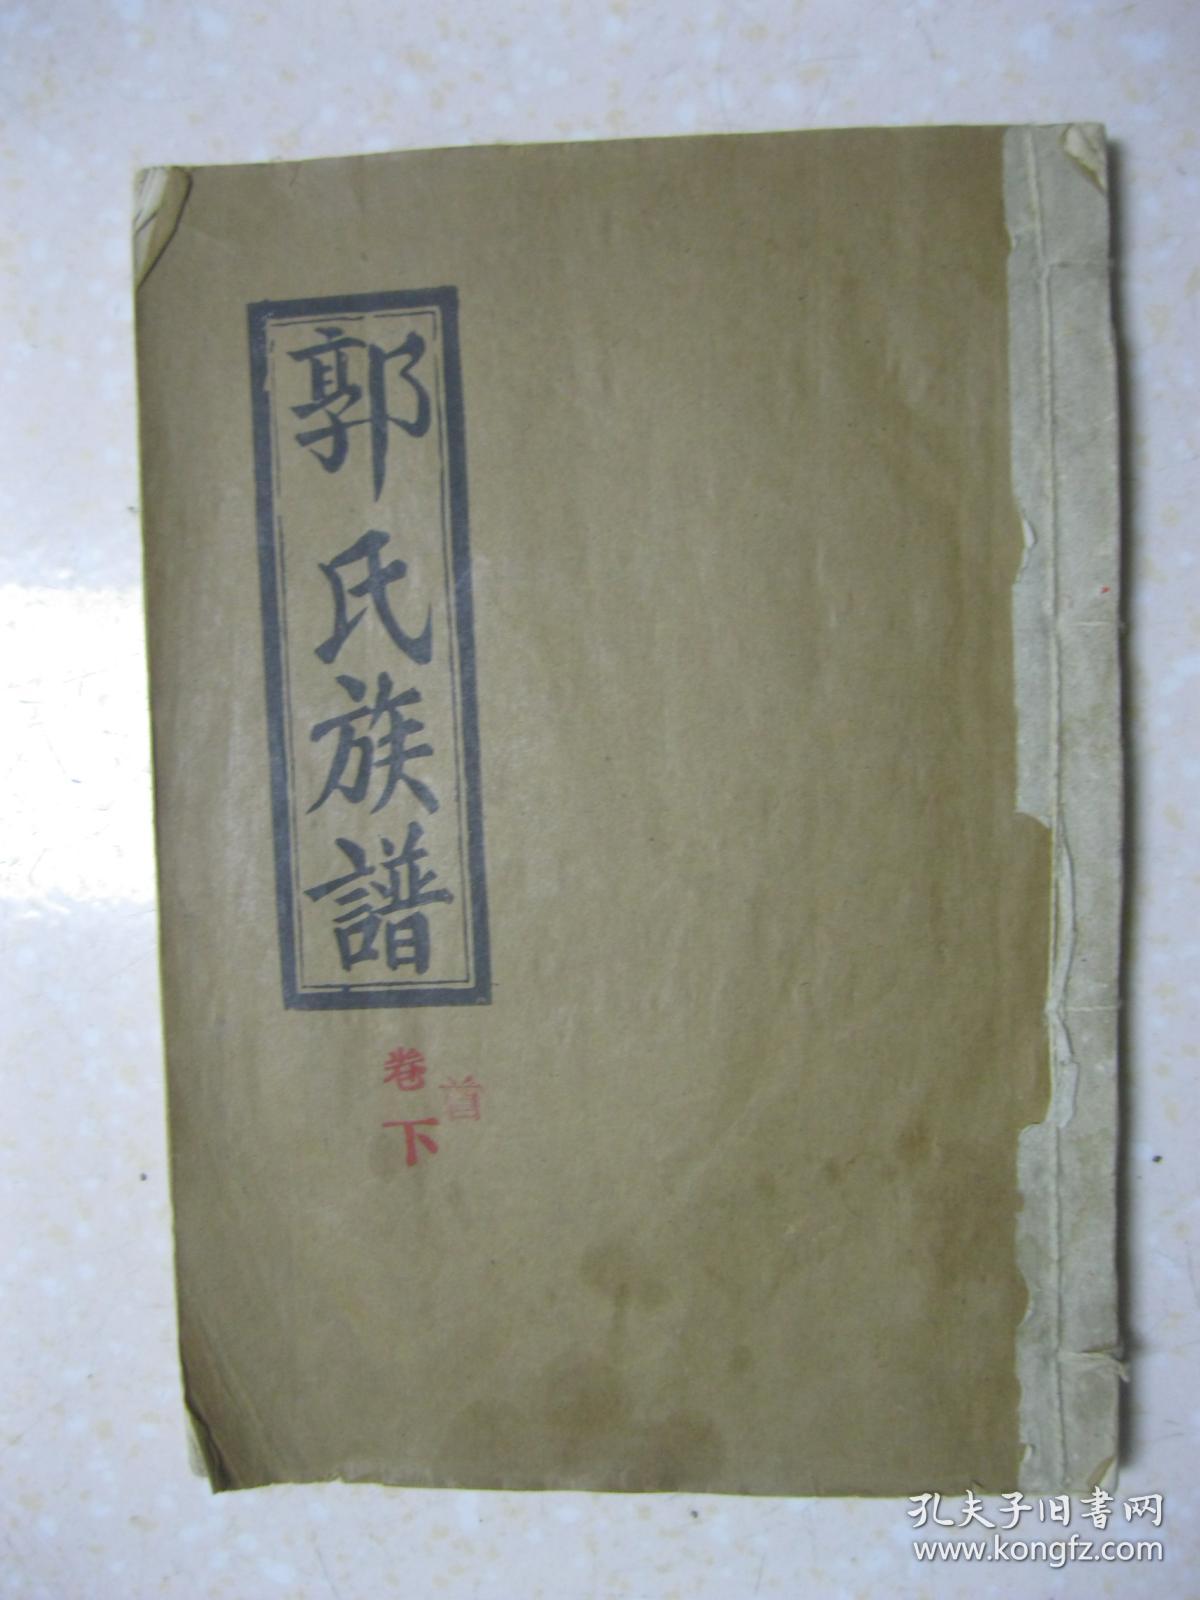 郭氏族譜
卷首下
孔夫子旧書网
www.kongfz.com